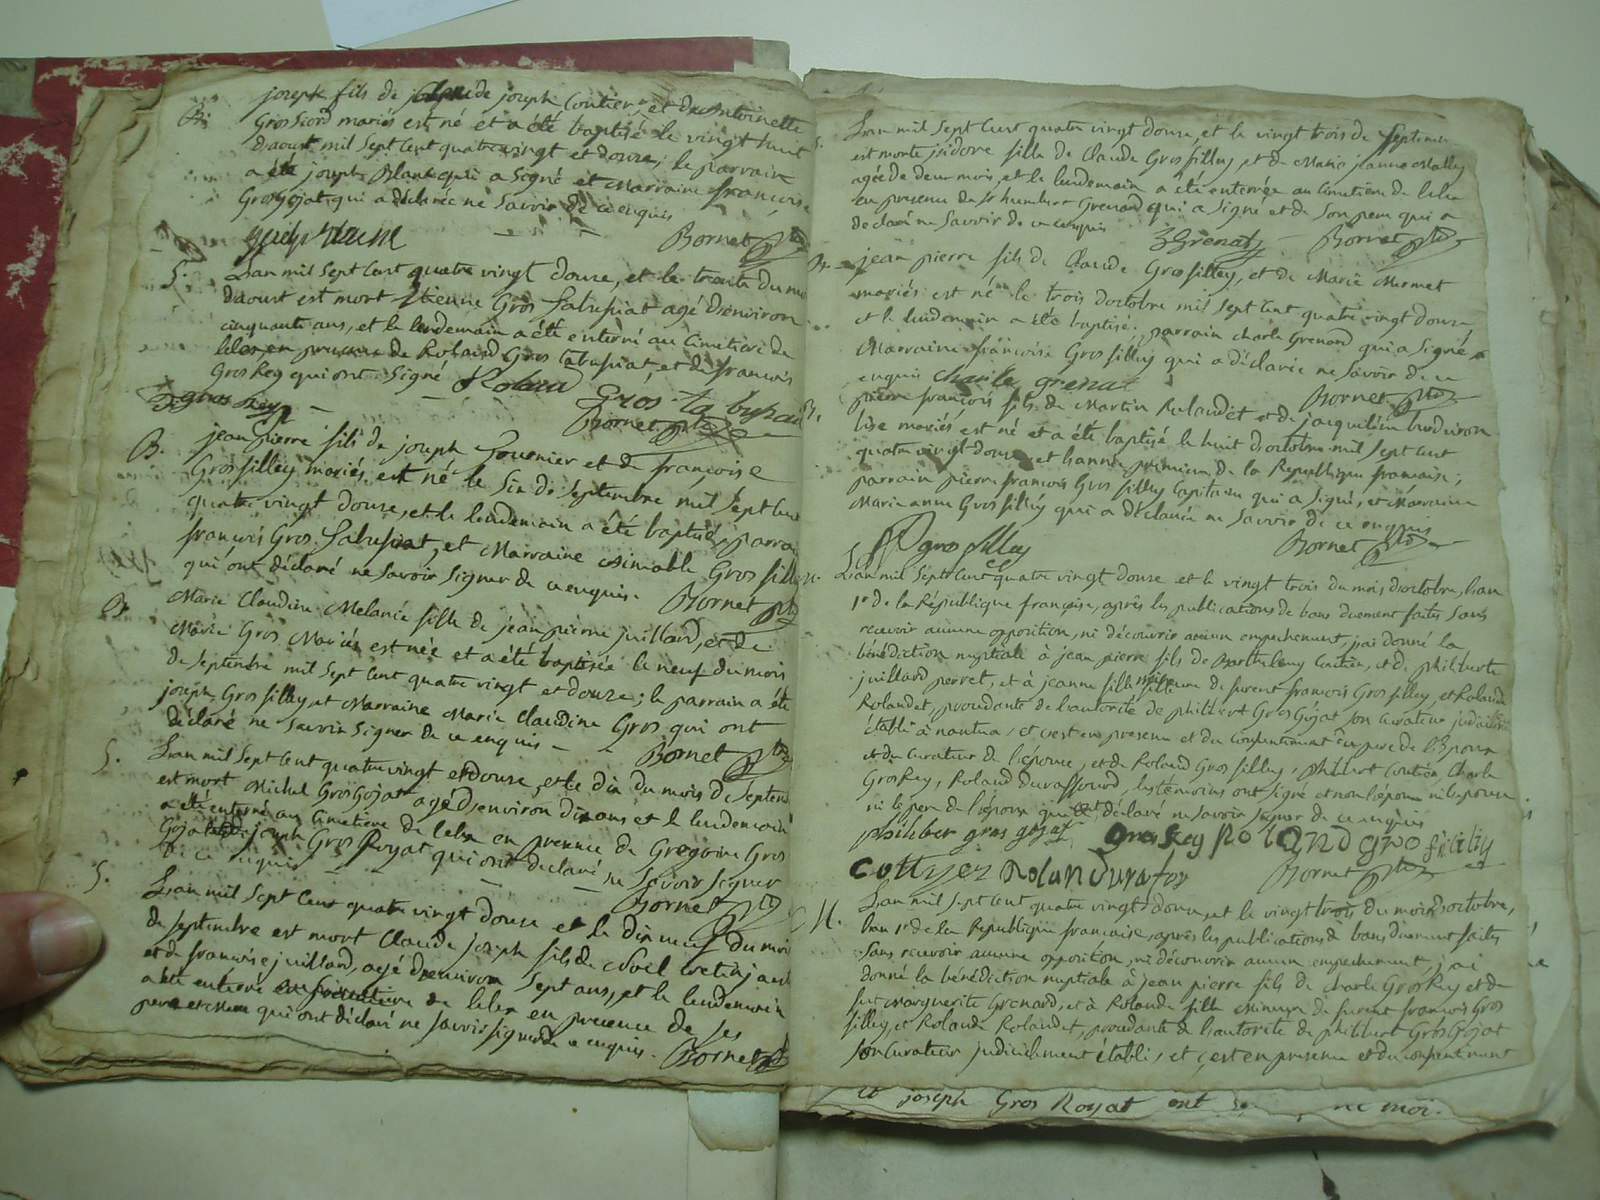 joseph fils de joseph Coutier, et de Antoinette
B. Gros Siord mariés est né et a été baptisé le vingt huit
daoust mil Sept Cent quatre vingt et douze; le parrain
a été joseph Blanc qui a Signé et Marraine françoise
Gros Gojat qui a déclarée ne Savoir de ce enquis
Bornet
S. Lan mil Sept Cent quatre vingt douze, et le trente du moi
daoust est mort Etienne Gros Tabussiat agé denviron
cinquante ans, et le lendemain a été enterré au Cimetiere de
Lelex en presence de Roland Gros tabussiat, et de francois
Gros Rey qui ont Signé Roland
gros Rey Gros ta bussia
Bornet
B. jean pierre fils de joseph fournier et de françoise
Gros filley mariés est né le Six de Septembre mil Sept Cent
quatre vingt douze, et le lendemain a été baptisé parrain
françois Gros Tabussiat, et Marraine Gros filley
qui ont déclaré ne Savoir Signer de ce enquis. Bornet
B. Marie Claudine Melanie fille de jean pierre juillard, et de
Marie Gros Mariés est née et a été baptisée le neuf du mois
de Septembre mil Sept Cent quatre vingt et douze; le parrain a été
joseph Gros filley et Marraine Marie Claudine Gros qui ont
déclaré ne Savoir Signer de ce enquis Bornet
S. Lan mil Sept Cent quatre vingt et douze, et le dix du mois de Septem
est mort Michel Gros Gojat agé denviron dix ans et le lendemain
a été enterré au Cimetiere de Lelex en presence de Gregoire Gros
Gojat et de joseph Gros Royat qui ont declaré ne Savoir Signer
de ce enquis Bornet
S. Lan mil Sept Cent quatre vingt douze et le dix neuf du moi
de Septembre est mort Claude joseph fils de Noel
et de françoise juillard, agé denviron Sept ans, et le lendemain
a été enterré au Cimetiere de Lelex en presence de Ses
pere et qui ont déclaré ne Savoir Signer de ce enquis. Bornet
S. Lan mil Sept Cent quatre vingt douze, et le vingt trois de Septem
est morte jsidore fille de Claude Gros filley, et de Marie jeanne Malley
agée de deux mois, et le lendemain a été enterrée au Cimetiere de Lelex
en presence de Sr humbert Grenard qui a Signé et de Son pere qui a
declaré ne Savoir de ce enquis Grenard Bornet
B. jean pierre fils de Claude Gros filley, et de Marie Mermet
mariés est né le trois doctobre mil Sept Cent quatre vingt douze,
et le lendemain a été baptisé: parrain charle Grenard qui a Signé
Marraine françoise Gros filley qui a déclarée ne Savoir de ce
enquis charle grenat Bornet
B. pierre françois fils de Martin Rolandet et de jacqueline
mariés est né et a été baptisé le huit doctobre mil Sept Cent
quatre vingt douze et lannée premiere de la Republique francaise;
parrain pierre françois Gros filley Capitaine qui a Signé, et Marraine
Marie anne Gros filley qui a déclarée ne Savoir de ce enquis
gros filley Bornet
M. Lan mil Sept Cent quatre vingt douze et le vingt trois du mois doctobre, lan
1er de la République françoise, après les publications de bans duement faites Sans
recevoir aucune opposition, ni découvrir aucun empechement, jai donné la
bénédiction nuptiale à jean pierre fils de Barthelemy Coutier, et de philiberte
juillard perret, et à jeanne fille mineure de furent françois Gros filley, et Rolande
Rolandet, procedante de l'autorité de philibert Gros Gojat Son Curateur judiciair
établi à nantua, et cest en presence et du consentement du pere de l'Epoux
et du Curateur de l'épouse, et de Roland Gros filley, philibert Coutier, Charle
Gros Rey, Roland duraffourd, les temoins ont Signé et non l'épouse ni l'epoux
ni le pere de l'epoux qui ont déclaré ne Savoir Signer de ce enquis
philiber gros gojat gros Rey Roland gro filley
cottyer Rolan durafor Bornet
M. Lan mil Sept Cent quatre vingt douze, et le vingt trois du mois doctobre,
lan 1er de la Republique francaise, après les publications de bans duement faites
Sans recevoir aucune opposition, ni découvrir aucun empechement, j'ai
donné la bénédiction nuptiale à jean pierre fils de Charle Gros Rey et de
fut Marguerite Grenard, et à Rolande fille Mineure de furent françois Gros
filley, et Rolande Rolandet, procedante de l'autorité de philibert Gros Gojat
Son Curateur judiciairement établi, et c'est en presence et du consentement
et joseph Gros Royat ont ne moi.